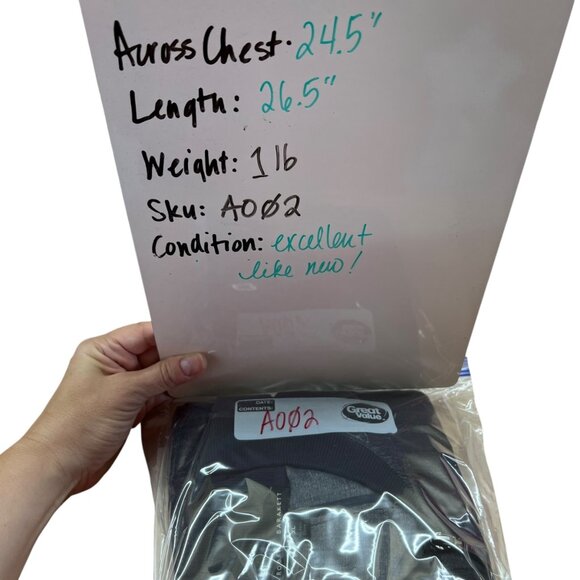 Across Chest. 24.5"
Length: 26.5"
Weight: 1 lb
Sku: A0Ø2
Condition: excellent
like new!
DATE:
CONTENTS:
A0Ø2
Great
Value